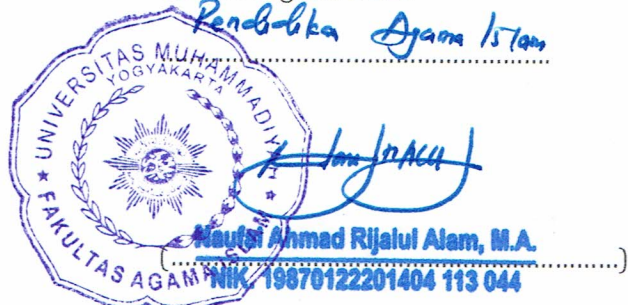 Pendidika Agama Islam
UNIVERSITAS MUHAMMADIYAH
YOGYAKARTA
★ FAKULTAS AGAMA ISLAM ★
Naufal Ahmad Rijalul Alam, M.A.
(........................................................)
NIK. 19870122201404 113 044